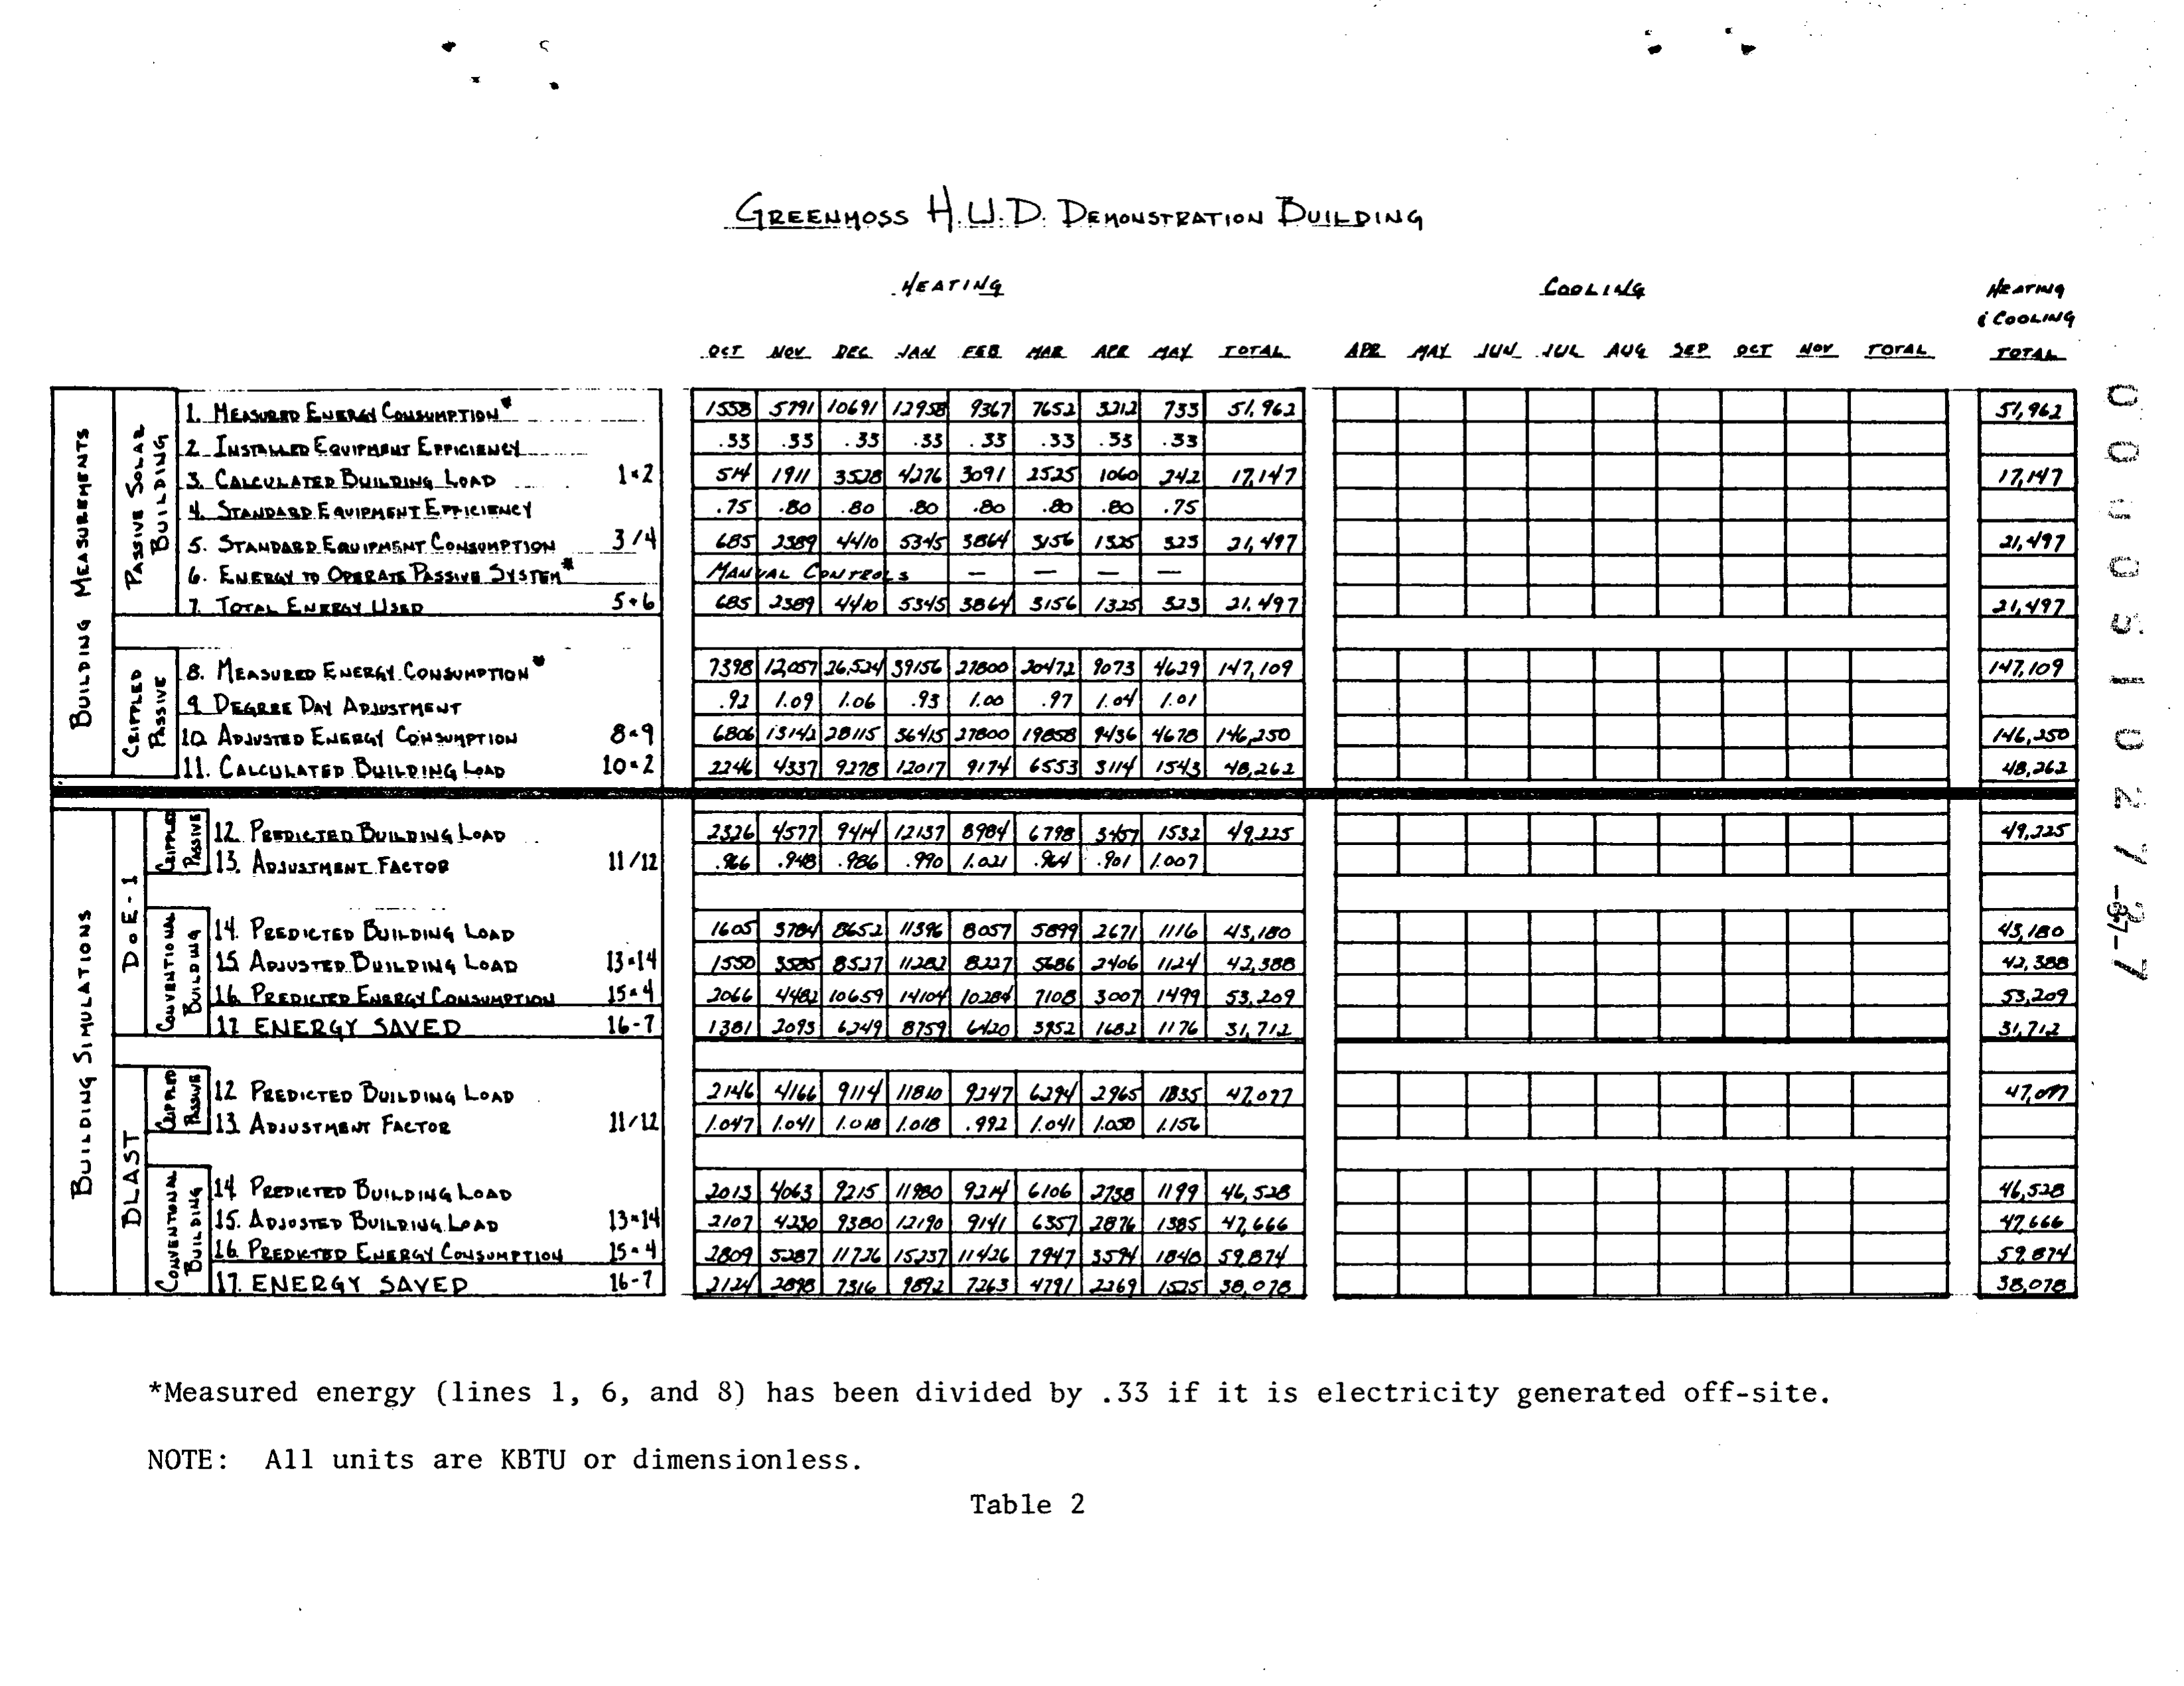 GREENMOSS H.U.D. DEMONSTRATION BUILDING
HEATING COOLING HEATING & COOLING TOTAL
OCT NOV DEC JAN FEB MAR APR MAY TOTAL APR MAY JUN JUL AUG SEP OCT NOV TOTAL
BUILDING MEASUREMENTS
PASSIVE SOLAR BUILDING
1. MEASURED ENERGY CONSUMPTION* 1558 5791 10691 12958 9367 7652 3212 733 51,962 51,962
2. INSTALLED EQUIPMENT EFFICIENCY .33 .33 .33 .33 .33 .33 .33 .33
3. CALCULATED BUILDING LOAD 1×2 514 1911 3528 4276 3091 2525 1060 242 17,147 17,147
4. STANDARD EQUIPMENT EFFICIENCY .75 .80 .80 .80 .80 .80 .80 .75
5. STANDARD EQUIPMENT CONSUMPTION 3/4 685 2389 4410 5345 3864 3156 1325 323 21,497 21,497
6. ENERGY TO OPERATE PASSIVE SYSTEM* MANUAL CONTROLS — — — —
7. TOTAL ENERGY USED 5+6 685 2389 4410 5345 3864 3156 1325 323 21,497 21,497
CRIPPLED PASSIVE
8. MEASURED ENERGY CONSUMPTION* 7398 12,057 26,524 39156 27800 20472 9073 4629 147,109 147,109
9. DEGREE DAY ADJUSTMENT .92 1.09 1.06 .93 1.00 .97 1.04 1.01
10. ADJUSTED ENERGY CONSUMPTION 8×9 6806 13142 28115 36415 27800 19858 9436 4678 146,250 146,250
11. CALCULATED BUILDING LOAD 10×2 2246 4337 9278 12017 9174 6553 3114 1543 48,262 48,262
BUILDING SIMULATIONS
DOE-1
CRIPPLED PASSIVE
12. PREDICTED BUILDING LOAD 2326 4577 9414 12137 8984 6798 3457 1532 49,225 49,225
13. ADJUSTMENT FACTOR 11/12 .966 .948 .986 .990 1.021 .964 .901 1.007
CONVENTIONAL BUILDING
14. PREDICTED BUILDING LOAD 1605 3784 8652 11396 8057 5899 2671 1116 43,180 43,180
15. ADJUSTED BUILDING LOAD 13×14 1550 3585 8527 11282 8227 5686 2406 1124 42,388 42,388
16. PREDICTED ENERGY CONSUMPTION 15÷4 2066 4482 10659 14104 10284 7108 3007 1499 53,209 53,209
17. ENERGY SAVED 16-7 1381 2093 6249 8759 6420 3952 1682 1176 31,712 31,712
BLAST
CRIPPLED PASSIVE
12. PREDICTED BUILDING LOAD 2146 4166 9114 11810 9247 6294 2965 1335 47,077 47,077
13. ADJUSTMENT FACTOR 11/12 1.047 1.041 1.018 1.018 .992 1.041 1.050 1.156
CONVENTIONAL BUILDING
14. PREDICTED BUILDING LOAD 2013 4063 9215 11980 9214 6106 2738 1199 46,528 46,528
15. ADJUSTED BUILDING LOAD 13×14 2107 4230 9380 12190 9141 6357 2876 1385 47,666 47,666
16. PREDICTED ENERGY CONSUMPTION 15÷4 2809 5287 11726 15237 11426 7947 3594 1848 59,874 59,874
17. ENERGY SAVED 16-7 2124 2898 7316 9892 7263 4791 2269 1525 38,078 38,078
*Measured energy (lines 1, 6, and 8) has been divided by .33 if it is electricity generated off-site.
NOTE: All units are KBTU or dimensionless.
Table 2